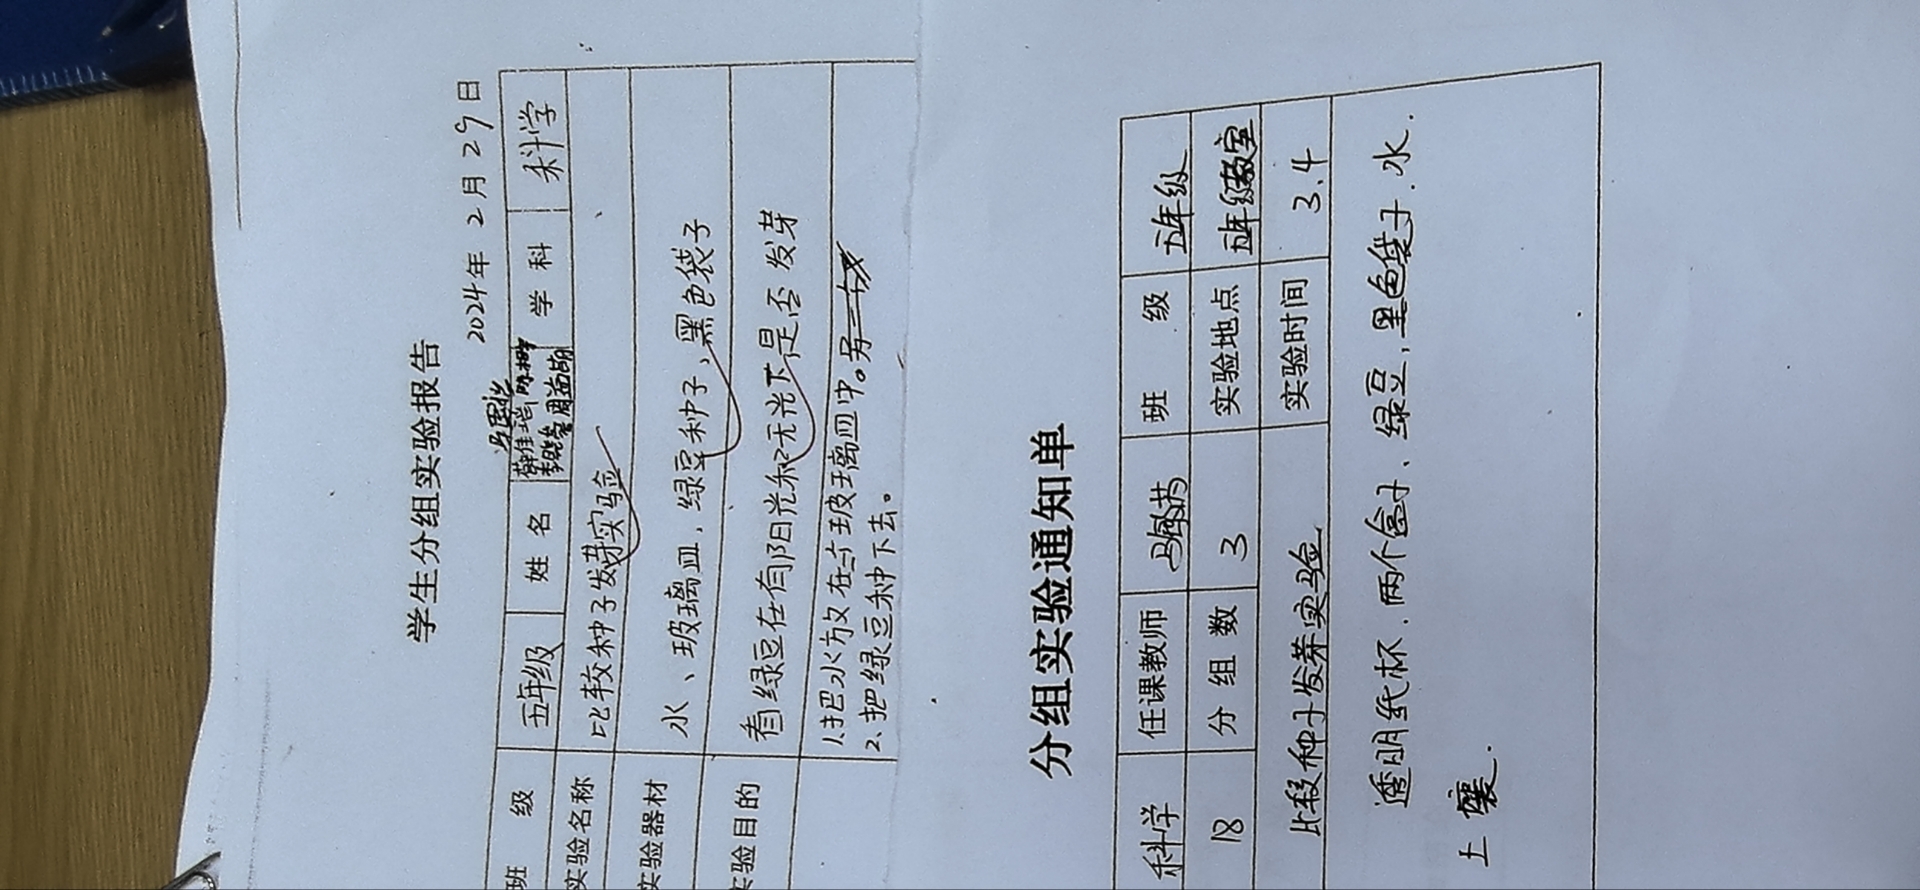 学生分组实验报告
2024年2月29日
班 级 五年级 姓 名 学 科 科学
实验名称 比较种子发芽实验
实验器材 水、玻璃皿，绿豆种子、黑色袋子
实验目的 看绿豆在有阳光和无光下是否发芽
1.把水放在玻璃皿中。
2、把绿豆种下去。
分组实验通知单
科学 任课教师 班 级 五年级
18 分 组 数 3 实验地点 五年级教室
比较种子发芽实验 实验时间 3.4
透明纸杯.两个盒子、绿豆,黑色袋子.水.
土壤.